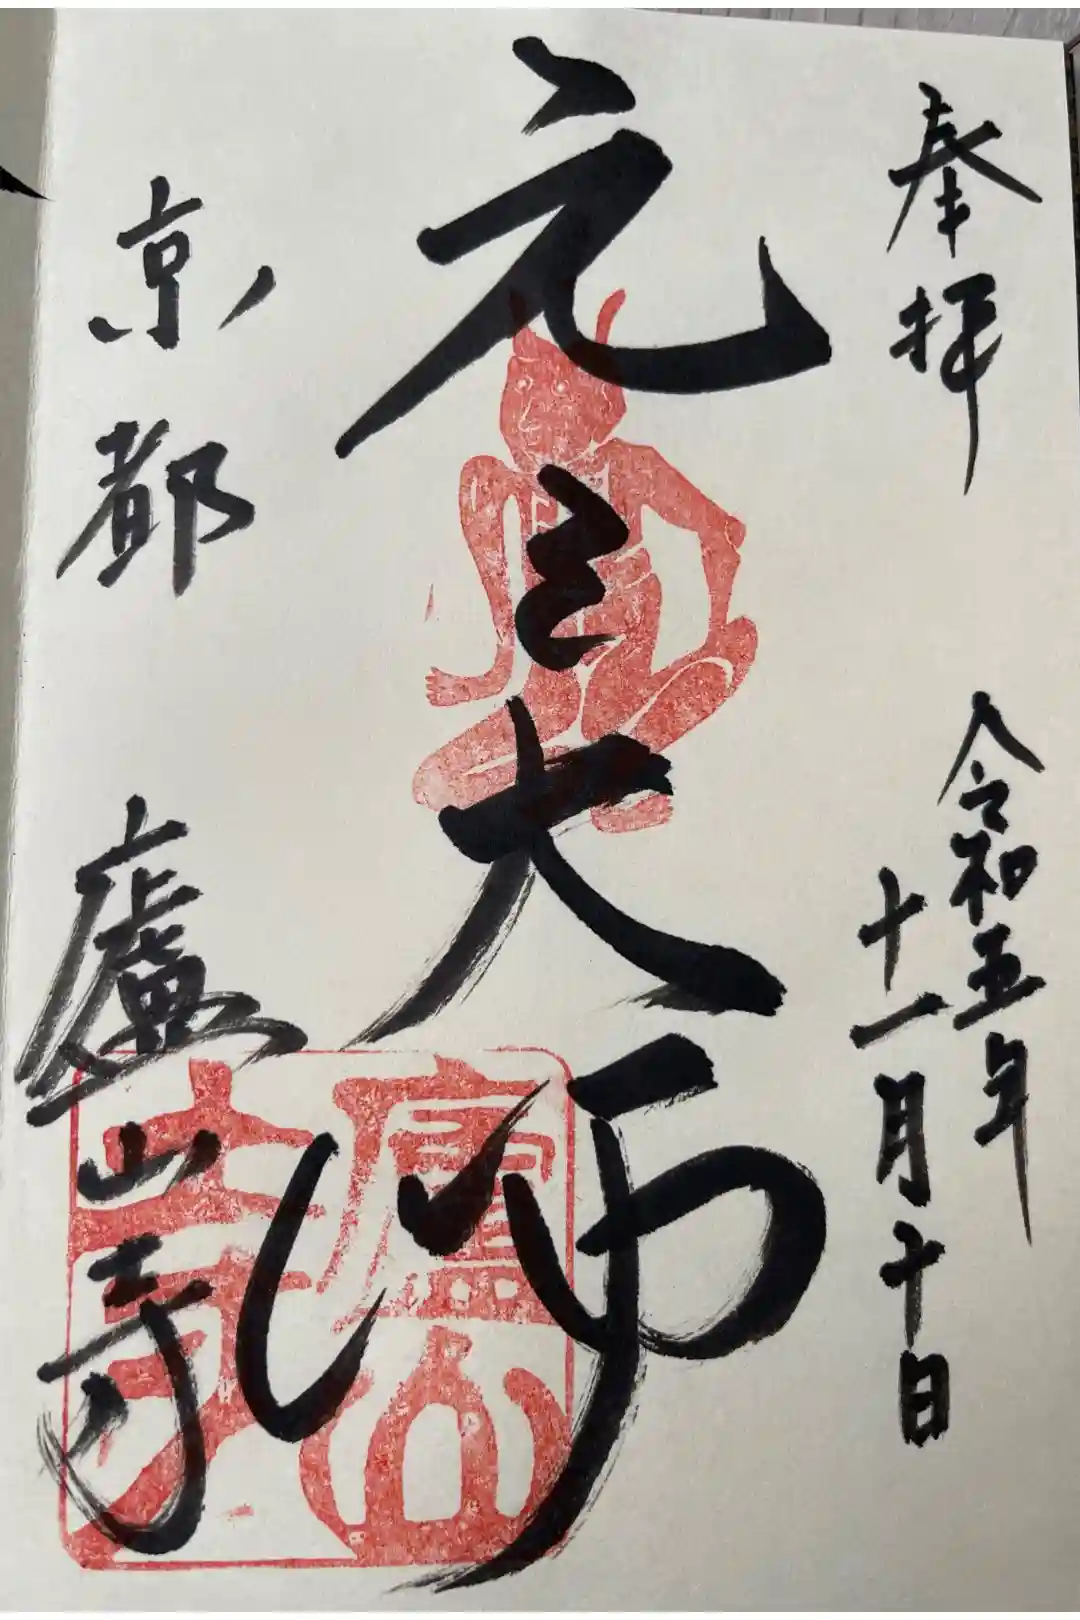 奉拝
令和五年
十一月十日
元三大師
京都
廬山寺
廬山寺